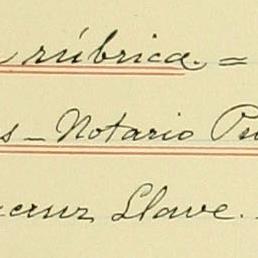 rúbrica. =
s - Notario Pu
cruz Llave.